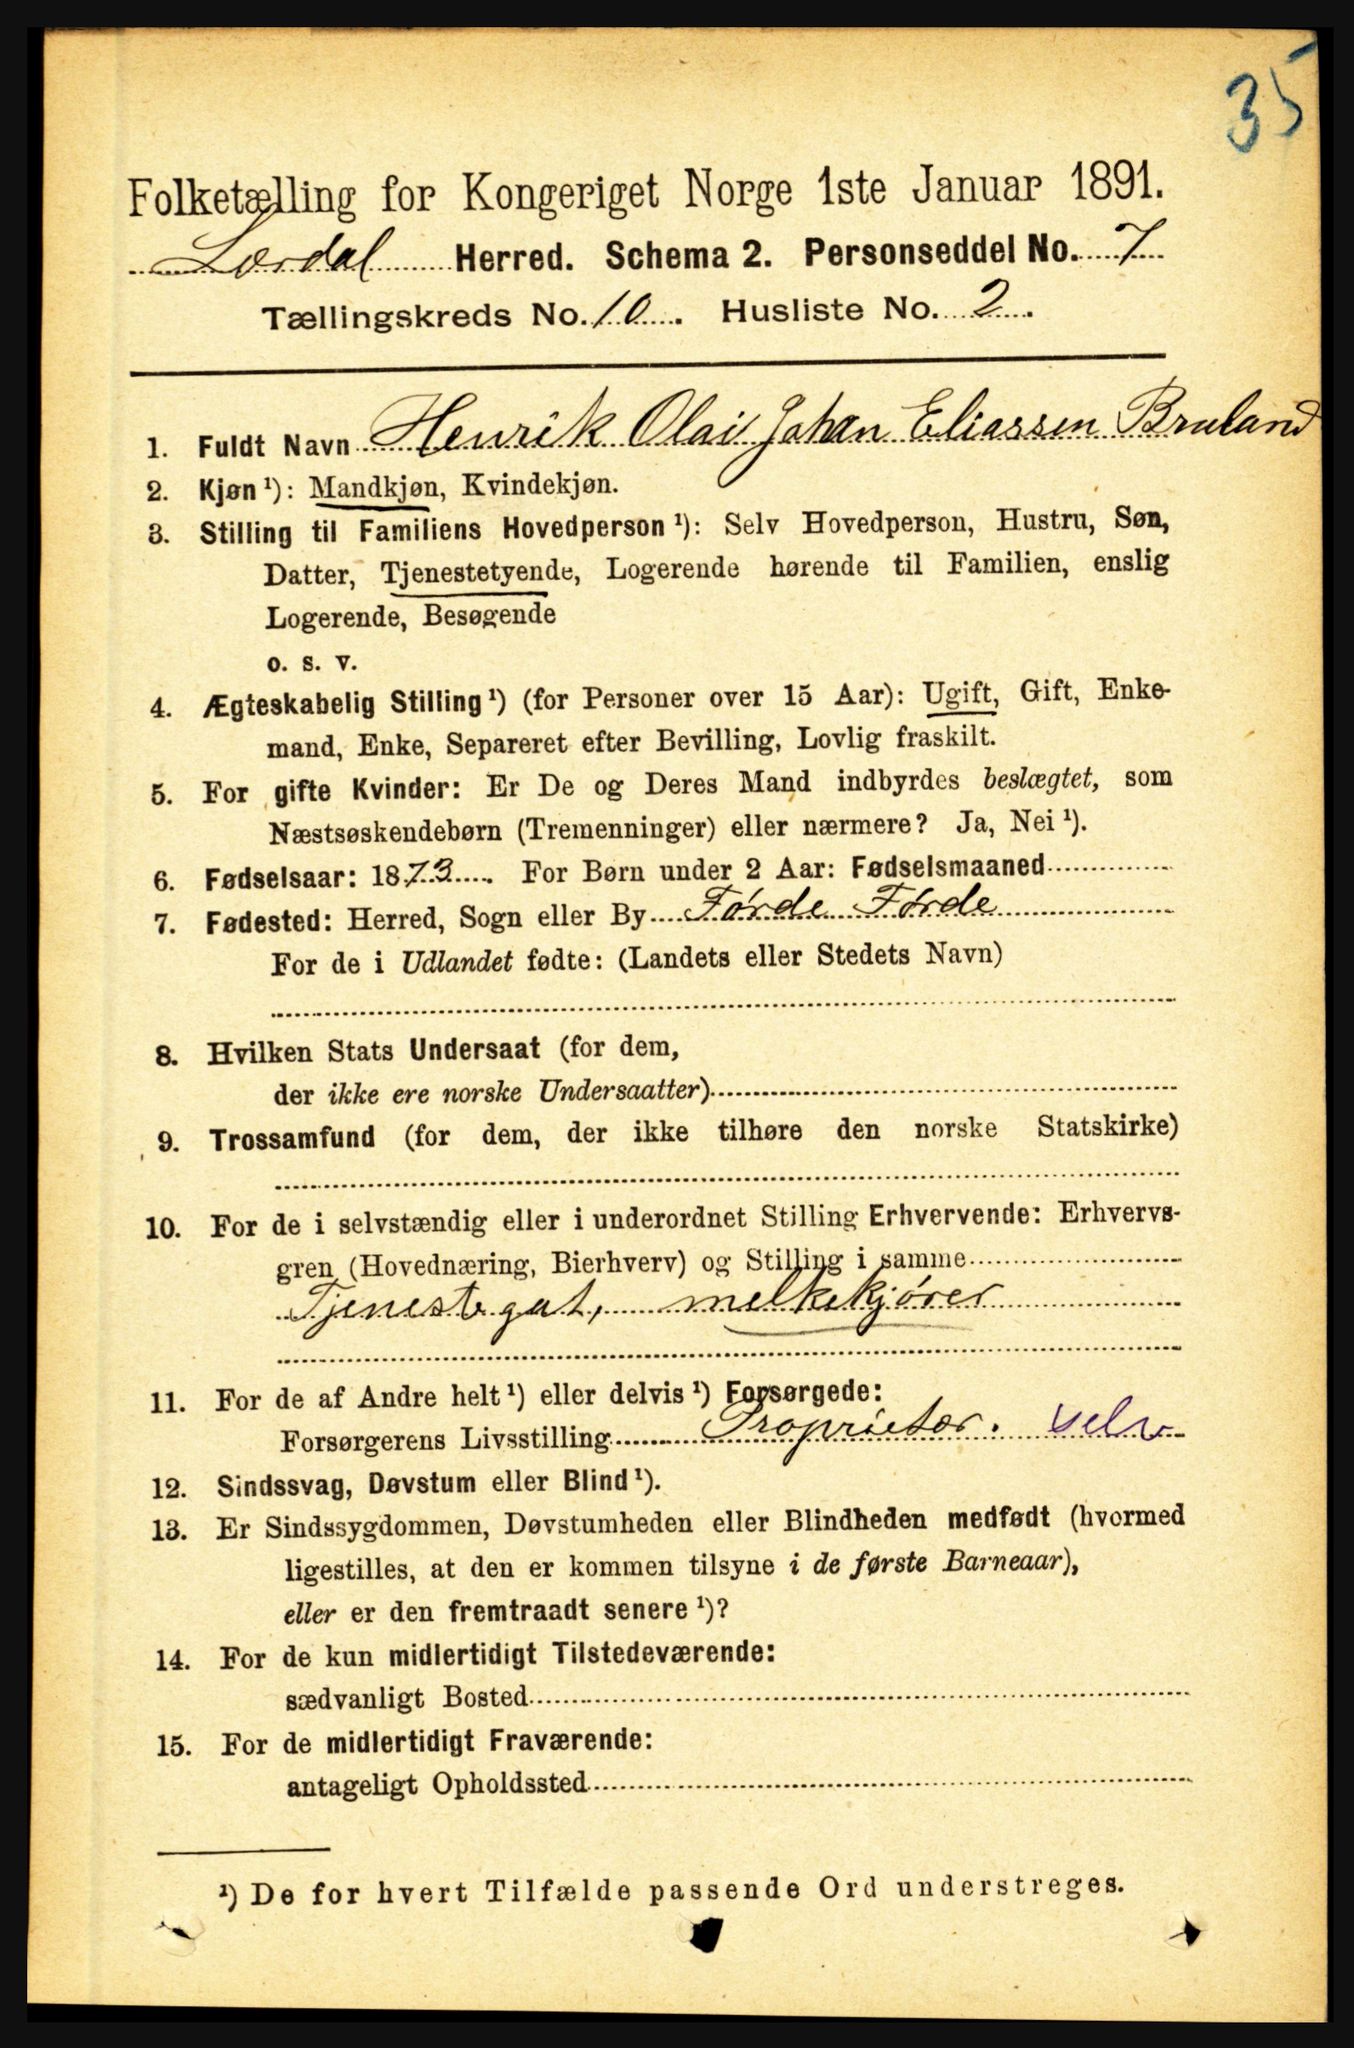 35
Folketælling for Kongeriget Norge 1ste Januar 1891.
Lærdal Herred. Schema 2. Personseddel No. 7
Tællingskreds No. 10. Husliste No. 2.
1. Fuldt Navn Henrik Olai Johan Eliassen Bruland
2. Kjøn ¹): Mandkjøn, Kvindekjøn.
3. Stilling til Familiens Hovedperson ¹): Selv Hovedperson, Hustru, Søn,
Datter, Tjenestetyende, Logerende hørende til Familien, enslig
Logerende, Besøgende
o. s. v.
4. Ægteskabelig Stilling ¹) (for Personer over 15 Aar): Ugift, Gift, Enke-
mand, Enke, Separeret efter Bevilling, Lovlig fraskilt.
5. For gifte Kvinder: Er De og Deres Mand indbyrdes beslægtet, som
Næstsøskendebørn (Tremenninger) eller nærmere? Ja, Nei ¹).
6. Fødselsaar: 1873. For Børn under 2 Aar: Fødselsmaaned
7. Fødested: Herred, Sogn eller By Førde Førde
For de i Udlandet fødte: (Landets eller Stedets Navn)
8. Hvilken Stats Undersaat (for dem,
der ikke ere norske Undersaatter)
9. Trossamfund (for dem, der ikke tilhøre den norske Statskirke)
10. For de i selvstændig eller i underordnet Stilling Erhvervende: Erhvervs-
gren (Hovednæring, Bierhverv) og Stilling i samme
Tjenestegut, melkekjører
11. For de af Andre helt ¹) eller delvis ¹) Forsørgede:
Forsørgerens Livsstilling Proprietær. selv
12. Sindssvag, Døvstum eller Blind ¹).
13. Er Sindssygdommen, Døvstumheden eller Blindheden medfødt (hvormed
ligestilles, at den er kommen tilsyne i de første Barneaar),
eller er den fremtraadt senere ¹)?
14. For de kun midlertidigt Tilstedeværende:
sædvanligt Bosted
15. For de midlertidigt Fraværende:
antageligt Opholdssted
¹) De for hvert Tilfælde passende Ord understreges.